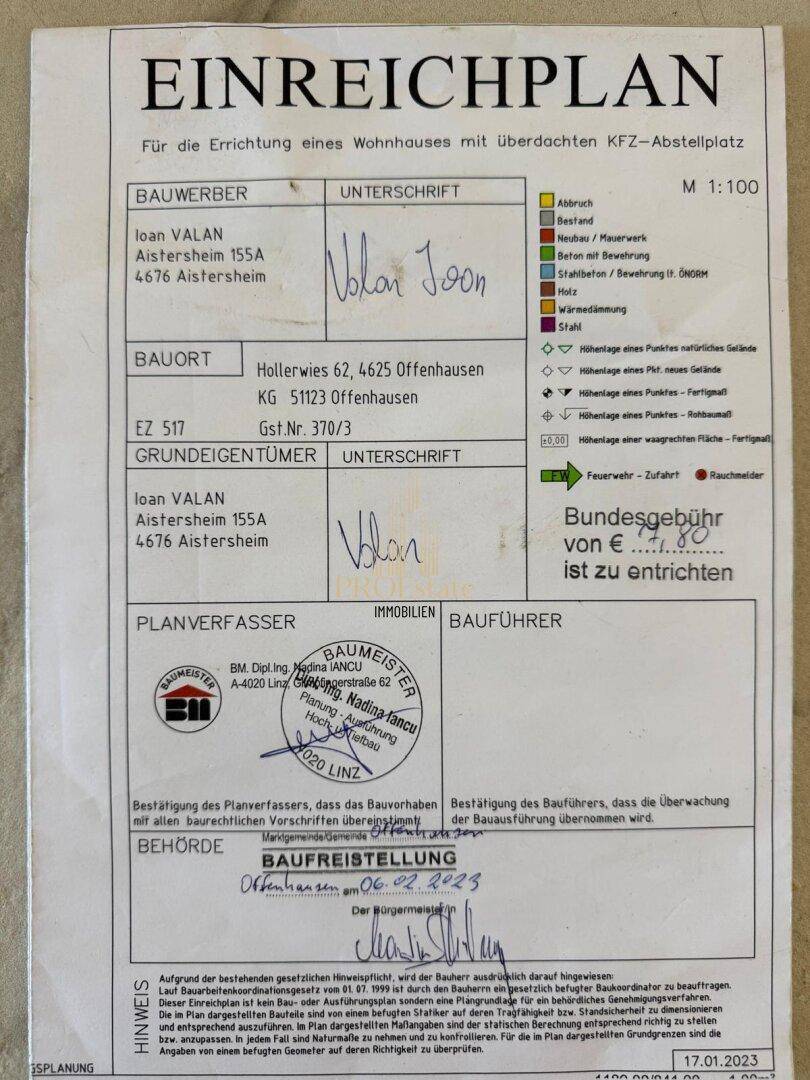 EINREICHPLAN
Für die Errichtung eines Wohnhauses mit überdachten KFZ-Abstellplatz
M 1:100
BAUWERBER
UNTERSCHRIFT
Ioan VALAN
Aistersheim 155A
4676 Aistersheim
Valan Ioan
Abbruch
Bestand
Neubau / Mauerwerk
Beton mit Bewehrung
Stahlbeton / Bewehrung lt. ÖNORM
Holz
Wärmedämmung
Stahl
Höhenlage eines Punktes natürliches Gelände
Höhenlage eines Pkt. neues Gelände
Höhenlage eines Punktes - Fertigmaß
Höhenlage eines Punktes - Rohbaumaß
±0,00 Höhenlage einer waagrechten Fläche - Fertigmaß
FW Feuerwehr - Zufahrt
Rauchmelder
BAUORT
Hollerwies 62, 4625 Offenhausen
KG 51123 Offenhausen
EZ 517
Gst.Nr. 370/3
GRUNDEIGENTÜMER
UNTERSCHRIFT
Ioan VALAN
Aistersheim 155A
4676 Aistersheim
Valan
PROEstate
IMMOBILIEN
Bundesgebühr
von € 7,80
ist zu entrichten
PLANVERFASSER
BAUMEISTER
BM
BM. Dipl.Ing. Nadina IANCU
A-4020 Linz, Gumpingerstraße 62
BAUMEISTER
Dipl.-Ing. Nadina Iancu
Planung - Ausführung
Hoch- u. Tiefbau
4020 LINZ
Bestätigung des Planverfassers, dass das Bauvorhaben
mit allen baurechtlichen Vorschriften übereinstimmt.
BAUFÜHRER
Bestätigung des Bauführers, dass die Überwachung
der Bauausführung übernommen wird.
BEHÖRDE
Marktgemeinde/Gemeinde Offenhausen
BAUFREISTELLUNG
Offenhausen am 06.02.2023
Der Bürgermeister/in
HINWEIS
Aufgrund der bestehenden gesetzlichen Hinweispflicht, wird der Bauherr ausdrücklich darauf hingewiesen:
Laut Bauarbeitenkoordinationsgesetz vom 01. 07. 1999 ist durch den Bauherrn ein gesetzlich befugter Baukoordinator zu beauftragen.
Dieser Einreichplan ist kein Bau- oder Ausführungsplan sondern eine Plangrundlage für ein behördliches Genehmigungsverfahren.
Die im Plan dargestellten Bauteile sind von einem befugten Statiker auf deren Tragfähigkeit bzw. Standsicherheit zu dimensionieren
und entsprechend auszuführen. Im Plan dargestellten Maßangaben sind der statischen Berechnung entsprechend richtig zu stellen
bzw. anzupassen. In jedem Fall sind Naturmaße zu nehmen und zu kontrollieren. Für die im Plan dargestellten Grundgrenzen sind die
Angaben von einem befugten Geometer auf deren Richtigkeit zu überprüfen.
17.01.2023
GSPLANUNG